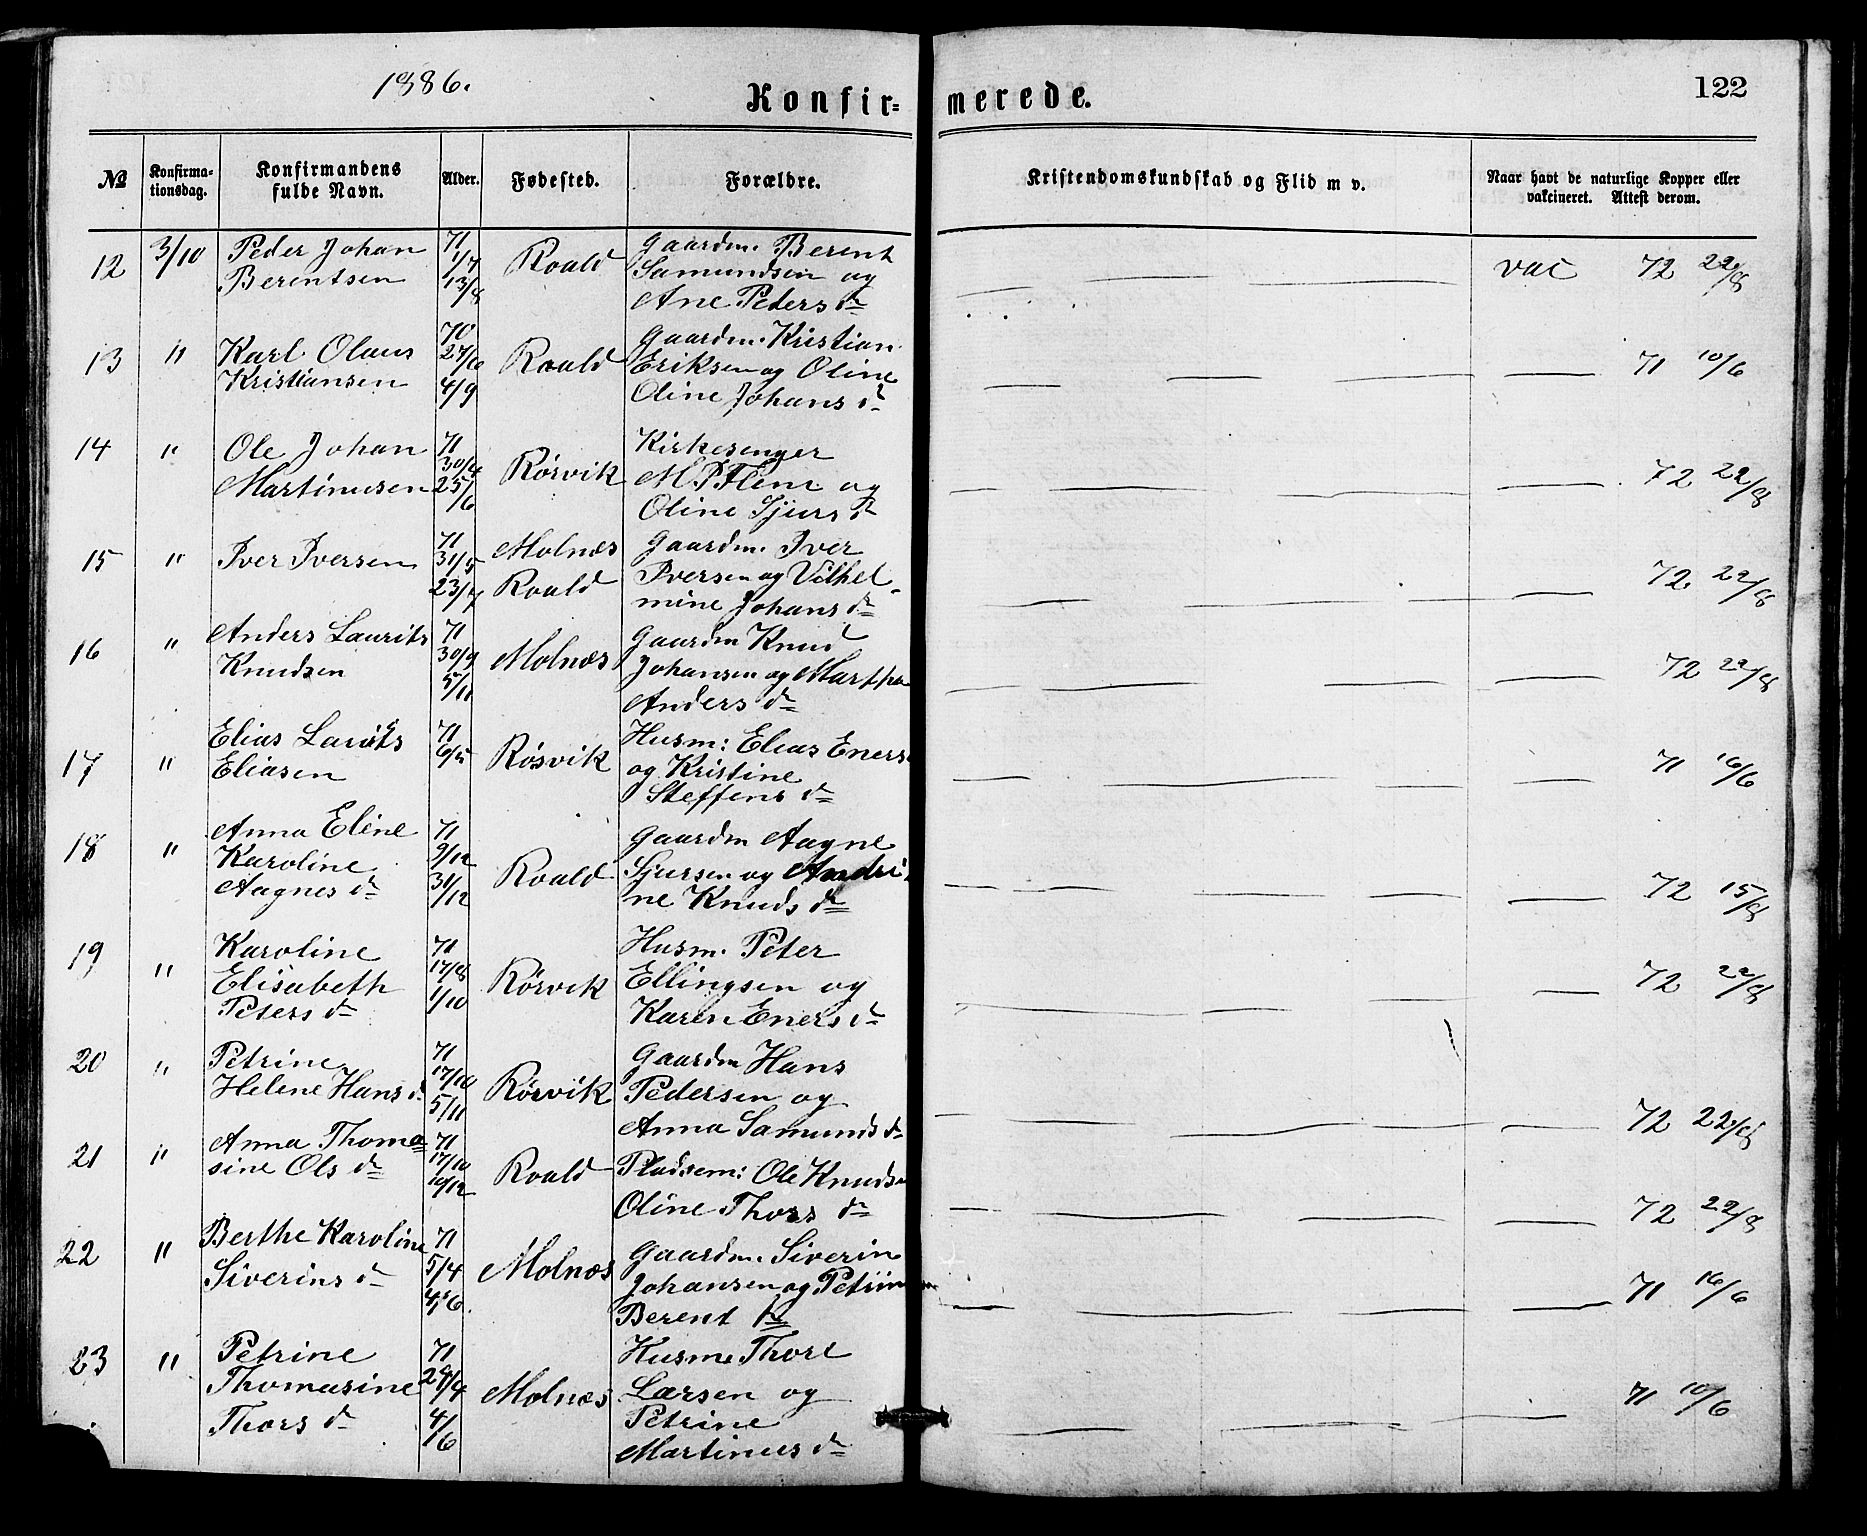 1886.
Konfirmerede.
122
№ Konfirmationsdag. Konfirmandens fulde Navn. Alder. Fødested. Forældre. Kristendomskundskab og Flid m v. Naar havt de naturlige Kopper eller vakcineret. Attest derom.
12 3/10 Peder Johan 71 Roald Gaardm. Berent vac 72 22/8
Berentsen 1/7 Samundsen og
13/8 Ane Peders d
13 " Karl Olaus 70 Roald Gaardm. Kristian 71 10/6
Kristiansen 27/6 Eriksen og Oline
4/9 Oline Johans d
14 " Ole Johan 71 Rørvik Kirkesenger 72 22/8
Martinusen 30/4 M. P. Flem og
25/6 Oline Sjurs d
15 " Iver Iversen 71 Molnæs Gaardm. Iver 72 22/8
31/5 Roald Iversen og Vilhel-
23/7 mine Johans d
16 " Anders Laurits 71 Molnæs Gaardm Knud 72 22/8
Knudsen 30/9 Johansen og Martha
5/11 Anders d
17 " Elias Larits 71 Røsvik Husm: Elias Eners. 71 16/6
Eliasen 6/5 og Kristine
Steffens d
18 " Anna Eline 71 Roald Gaardm Aagne 72 15/8
Karoline 9/12 Sjursen og Andri
Aagnes d 31/12 ne Knuds d
19 " Karoline 71 Rørvik Husm. Peter 72 22/8
Elisabeth 17/8 Ellingsen og
Peters d 1/10 Karen Eners d
20 " Petrine 71 Rørvik Gaardm Hans 72 22/8
Helene Hans d 17/10 Pedersen og
5/11 Anna Samunds d
21 " Anna Thoma 71 Roald Pladsem: Ole Knuds 72 22/8
sine Ols d 17/10 Oline Thors d
22 " Berthe Karoline 71 Molnæs Gaardm. Siverin 71 16/6
Siverins d 5/4 Johansen og
4/6 Berent
23 " Petrine 71 Molnæs Husm. Thore 71 10/6
Thomasine 29/4 Larsen og
Thors d 4/6 Petrine
Martinus d